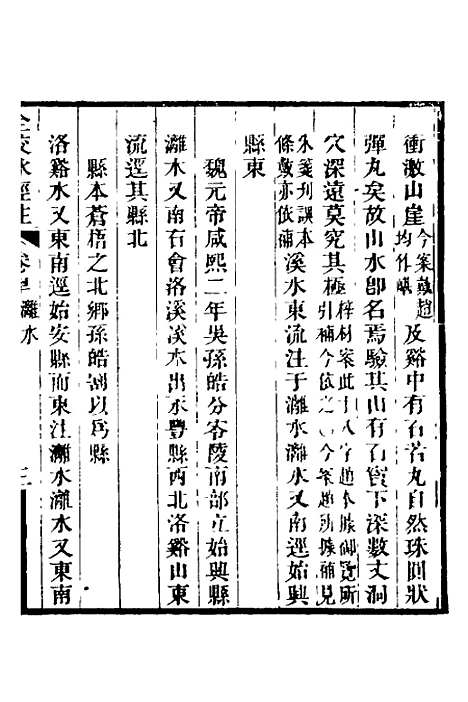 衝激山崖今案戴趙均作嶬及谿中有石若丸自然珠圓狀
彈丸矣故山水卽名焉驗其山有石竇下深數丈洞
穴深遠莫究其極梓材案此十八字趙本據御覽所引補今依之○今案趙所據補見
朱箋刊誤本條戴亦依補溪水東流注于灕水灕水又南逕始興
縣東
魏元帝咸熙二年吳孫皓分零陵南部立始興縣
灕水又南右會洛溪溪水出永豐縣西北洛谿山東
流逕其縣北
縣本蒼梧之北鄉孫皓割以爲縣
洛谿水又東南逕始安縣而東注灕水灕水又東南
全校水經注
卷三十八
灕水